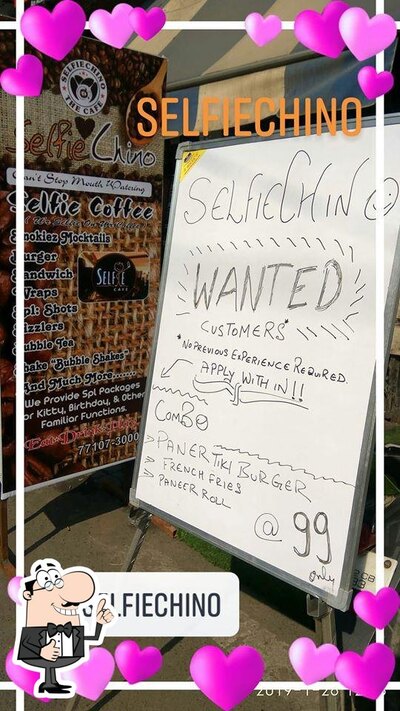 SELFIECHINO
SELFIECHINO
THE CAFE
Selfie Chino
Can't Stop Mouth Watering
Selfie Coffee
Smokiez Mocktails
Burger
Sandwich
Wraps
Spl: Shots
Sizzlers
Bubble Tea
Shake "Bubble Shakes"
And Much More.......
We Provide Spl Packages
For Kitty, Birthday, & Other
Familiar Functions.
77107-3000
SELFIE
CAFE
SELFIECHINO
WANTED
CUSTOMERS"
"NO PREVIOUS EXPERIENCE REQUIRED.
APPLY WITH IN!!
COMBO
> PANER TIKI BURGER
> FRENCH FRIES
> PANEER ROLL
@ 99
only
SELFIECHINO